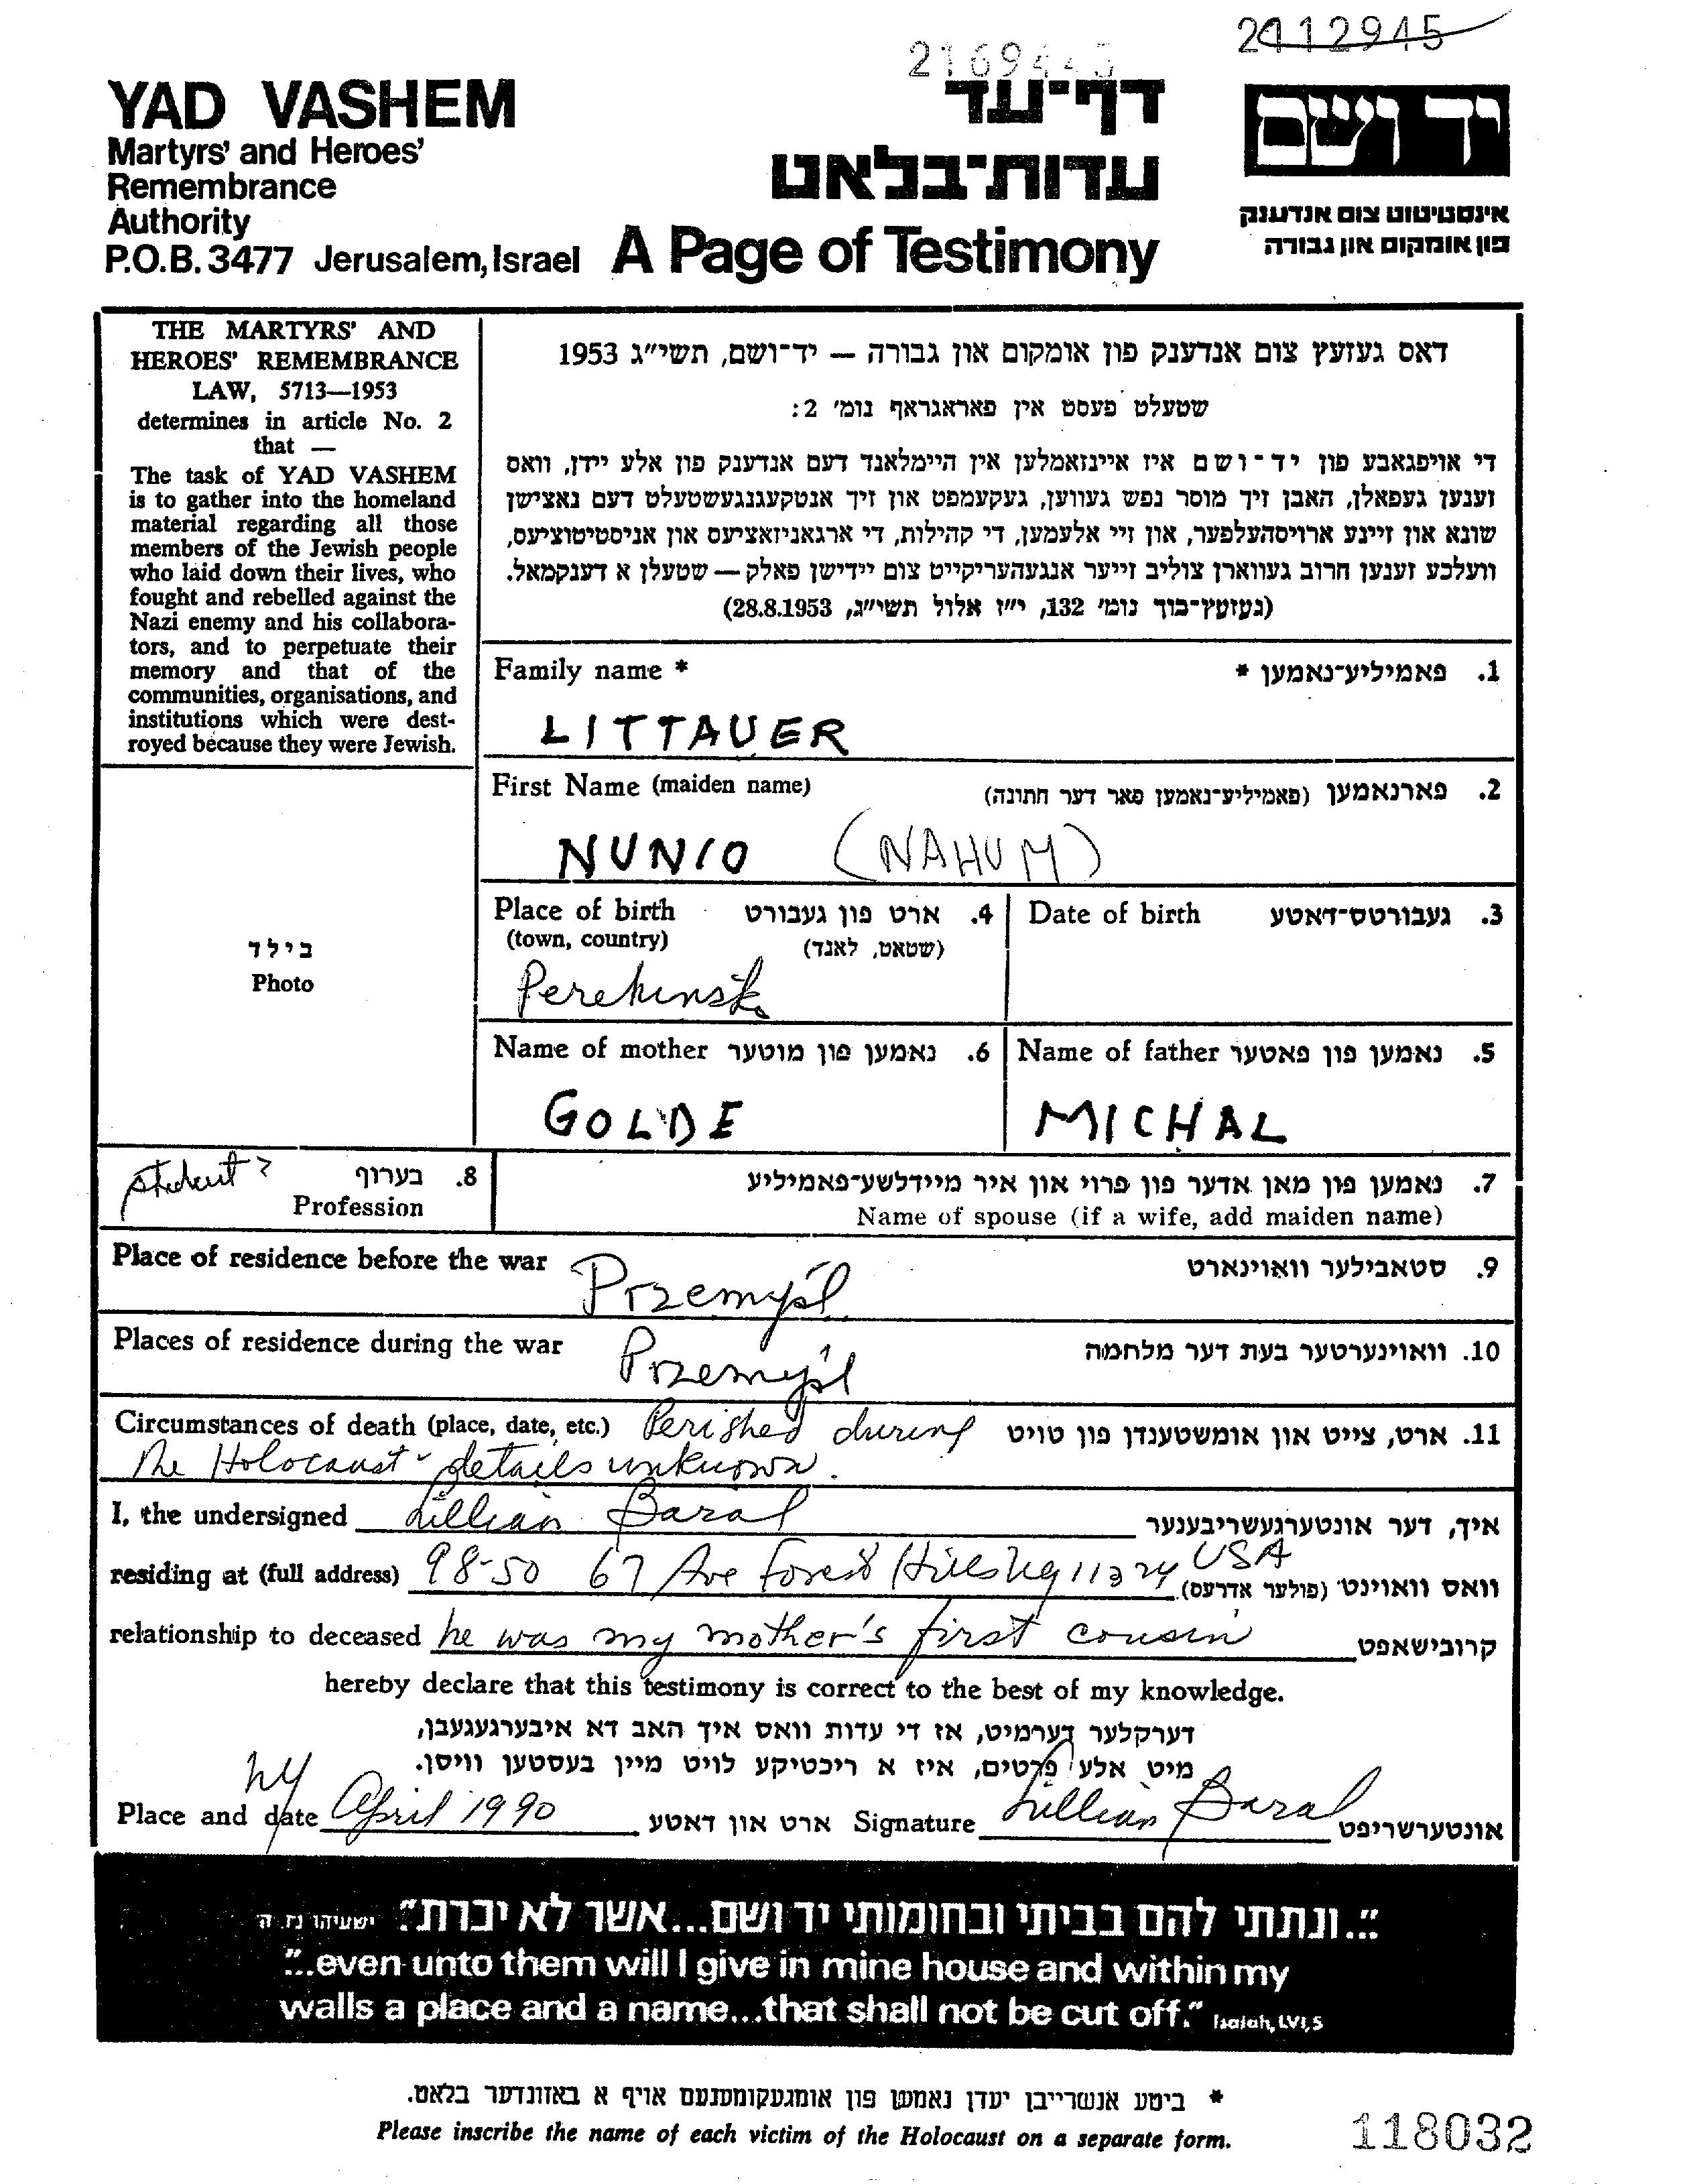 2112945
YAD VASHEM
Martyrs' and Heroes'
Remembrance
Authority
P.O.B. 3477 Jerusalem, Israel
דף־עד
עדות־בלאט
A Page of Testimony
יד ושם
אינסטיטוט צום אנדענק
פון אומקום און גבורה
THE MARTYRS' AND
HEROES' REMEMBRANCE
LAW, 5713—1953
determines in article No. 2
that —
The task of YAD VASHEM
is to gather into the homeland
material regarding all those
members of the Jewish people
who laid down their lives, who
fought and rebelled against the
Nazi enemy and his collabora-
tors, and to perpetuate their
memory and that of the
communities, organisations, and
institutions which were dest-
royed because they were Jewish.
דאס געזעץ צום אנדענק פון אומקום און גבורה — יד־ושם, תשי״ג 1953
שטעלט פעסט אין פאראגראף נומ׳ 2:
די אויפגאבע פון יד־ושם איז איינזאמלען אין היימלאנד דעם אנדענק פון אלע יידן, וואס
זענען געפאלן, האבן זיך מוסר נפש געווען, געקעמפט און זיך אנטקעגנגעשטעלט דעם נאצישן
שונא און זיינע ארויסהעלפער, און זיי אלעמען, די קהילות, די ארגאניזאציעס און אניסטיטוציעס,
וועלכע זענען חרוב געווארן צוליב זייער אנגעהעריקייט צום יידישן פאלק — שטעלן א דענקמאל.
(געזעץ־בוך נומ׳ 132, י״ז אלול תשי״ג, 28.8.1953)
Family name *
1. פאמיליע־נאמען *
LITTAUER
First Name (maiden name)
2. פארנאמען (פאמיליע־נאמען פאר דער חתונה)
NUNIO (NAHUM)
Place of birth 4. ארט פון געבורט
(town, country) (שטאט, לאנד)
Perehinsko
Date of birth 3. געבורטס־דאטע
בילד
Photo
Name of mother 6. נאמען פון מוטער
GOLDE
Name of father 5. נאמען פון פאטער
MICHAL
student? 8. בערוף
Profession
7. נאמען פון מאן אדער פון פרוי און איר מיידלשע־פאמיליע
Name of spouse (if a wife, add maiden name)
Place of residence before the war Przemyśl 9. סטאבילער וואוינארט
Places of residence during the war Przemyśl 10. וואוינערטער בעת דער מלחמה
Circumstances of death (place, date, etc.) Perished during 11. ארט, צייט און אומשטענדן פון טויט
the Holocaust - details unknown.
I, the undersigned Lillian Baral איך, דער אונטערגעשריבענער
residing at (full address) 98-50 67 Ave Forest Hills NY 11374 USA וואס וואוינט (פולער אדרעס)
relationship to deceased he was my mother's first cousin קרובישאפט
hereby declare that this testimony is correct to the best of my knowledge.
דערקלער דערמיט, אז די עדות וואס איך האב דא איבערגעגעבן,
מיט אלע פרטים, איז א ריכטיקע לויט מיין בעסטען וויסן.
NY
Place and date April 1990 ארט און דאטע Signature Lillian Baral אונטערשריפט
"...ונתתי להם בביתי ובחומותי יד ושם...אשר לא יכרת" ישעיהו נז. ה
"...even unto them will I give in mine house and within my
walls a place and a name...that shall not be cut off." Isaiah, LVI, 5
* ביטע אנשרייבן יעדן נאמען פון אומגעקומענעם אויף א באזונדער בלאט.
Please inscribe the name of each victim of the Holocaust on a separate form.
118032